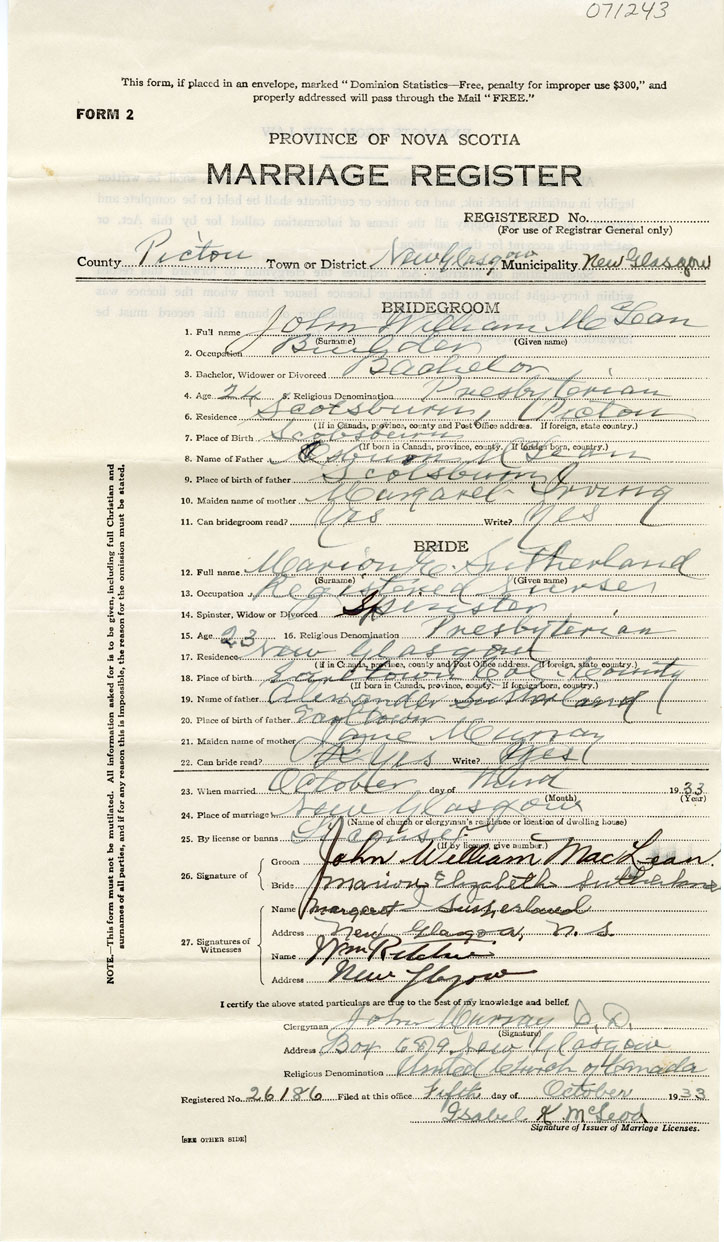 071243
This form, if placed in an envelope, marked "Dominion Statistics—Free, penalty for improper use $300," and
properly addressed will pass through the Mail "FREE."
FORM 2
PROVINCE OF NOVA SCOTIA
MARRIAGE REGISTER
REGISTERED No.
(For use of Registrar General only)
County Pictou Town or District New Glasgow Municipality New Glasgow
BRIDEGROOM
1. Full name John William McLean
(Surname) (Given name)
2. Occupation Builder
3. Bachelor, Widower or Divorced Bachelor
4. Age 24 5. Religious Denomination Presbyterian
6. Residence Scotsburn, Pictou
(If in Canada, province, county and Post Office address. If foreign, state country.)
7. Place of Birth Scotsburn
(If born in Canada, province, county. If foreign born, country.)
8. Name of Father Osburn McLean
9. Place of birth of father Scotsburn
10. Maiden name of mother Margaret Irving
11. Can bridegroom read? Yes Write? Yes
BRIDE
12. Full name Marion E. Sutherland
(Surname) (Given name)
13. Occupation Registered Nurse
14. Spinster, Widow or Divorced Spinster
15. Age 23 16. Religious Denomination Presbyterian
17. Residence New Glasgow
(If in Canada, province, county and Post Office address. If foreign, state country.)
18. Place of birth Earltown Col. County
(If born in Canada, province, county. If foreign born, country.)
19. Name of father Alexander Sutherland
20. Place of birth of father Earltown
21. Maiden name of mother Jane Murray
22. Can bride read? Yes Write? Yes
23. When married October day of Third 1933
(Month) (Year)
24. Place of marriage New Glasgow
(Name of church or clergyman's residence or location of dwelling house)
25. By license or banns License
(If by license, give number.)
26. Signature of
Groom John William MacLean
Bride Marion Elizabeth Sutherland
27. Signatures of Witnesses
Name Margaret Sutherland
Address New Glasgow, N.S.
Name Wm Ritchie
Address New Glasgow
I certify the above stated particulars are true to the best of my knowledge and belief.
Clergyman John Murray
(Signature)
Address Box New Glasgow
Religious Denomination United Church of Canada
Registered No. 26186 Filed at this office Fifth day of October 1933
Isabel K. McLeod
Signature of Issuer of Marriage Licenses.
[SEE OTHER SIDE]
NOTE.—This form must not be mutilated. All information asked for is to be given, including full Christian and
surnames of all parties, and if for any reason this is impossible, the reason for the omission must be stated.